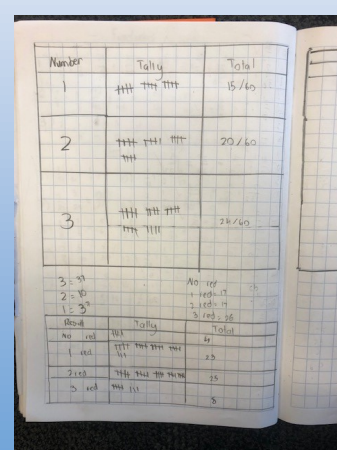 Number Tally Total
1 15/60
2 20/60
3 24/60
3 = 37
2 = 10
1 = 3
No red
1 red = 17
2 red = 14
3 red = 28
Result Tally Total
No red 4
1 red 23
2 red 25
3 red 8